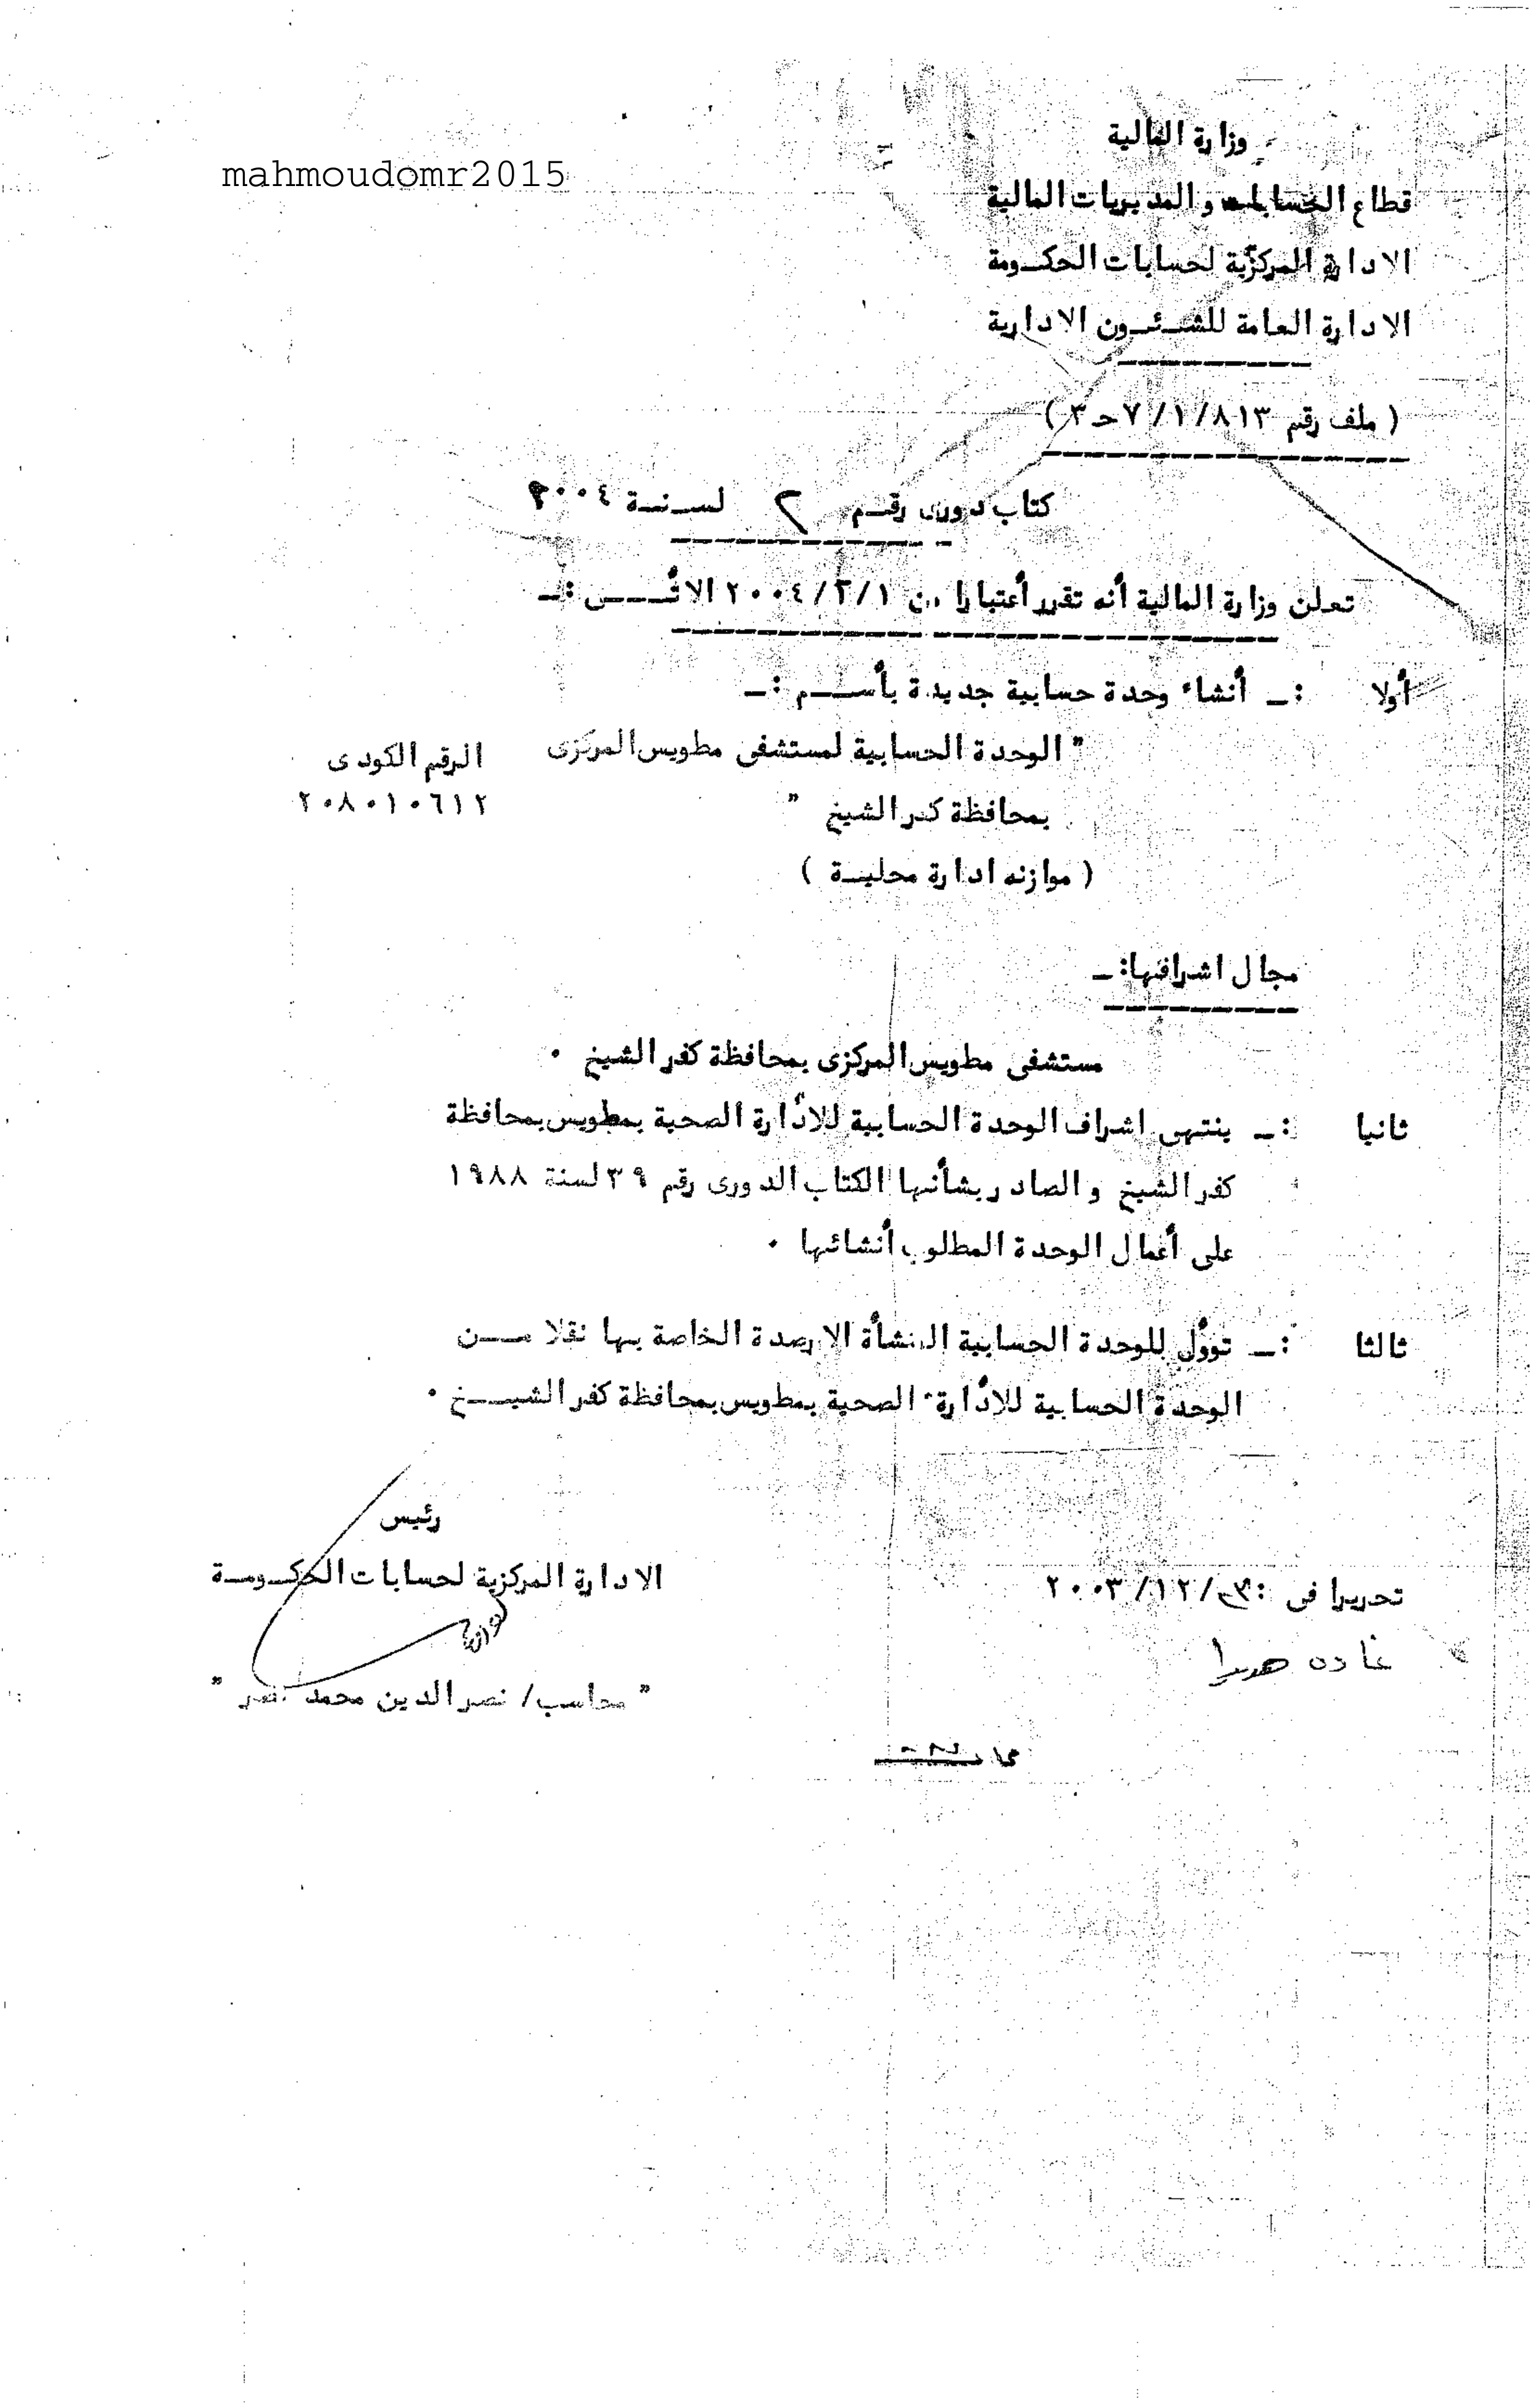 mahmoudomr2015
وزارة المالية
قطاع الحسابات والمديريات المالية
الادارة المركزية لحسابات الحكــومة
الادارة العامة للشــئــون الادارية
( ملف رقم ٧/١/٨١٣ حـ٣ )
كتاب دورى رقــم ٢ لســنــة ٢٠٠٤
تعلن وزارة المالية أنه تقرر أعتبارا من ٢٠٠٤/٢/١ الاتــــى :ــ
أولا :ــ أنشاء وحدة حسابية جديدة بأســــم :ــ
" الوحدة الحسابية لمستشفى مطويس المركزى
الرقم الكودى
بمحافظة كفر الشيخ "
٢٠٨٠١٠٦١٢
( موازنه ادارة محليــة )
مجال اشرافها:ــ
مستشفى مطويس المركزى بمحافظة كفر الشيخ ٠
ثانيا :ــ ينتهى اشراف الوحدة الحسابية للادارة الصحية بمطويس بمحافظة
كفر الشيخ والصادر بشأنها الكتاب الدورى رقم ٣٩ لسنة ١٩٨٨
على أعمال الوحدة المطلوب أنشائها ٠
ثالثا :ــ توول للوحدة الحسابية المنشأة الارصدة الخاصة بها نقلا مـــن
الوحدة الحسابية للادارة الصحية بمطويس بمحافظة كفر الشيـــخ ٠
رئيس
الادارة المركزية لحسابات الحكــومــة
تحريرا فى : /١٢/٢٠٠٣
غاده
" محاسب/ نصر الدين محمد نصر "